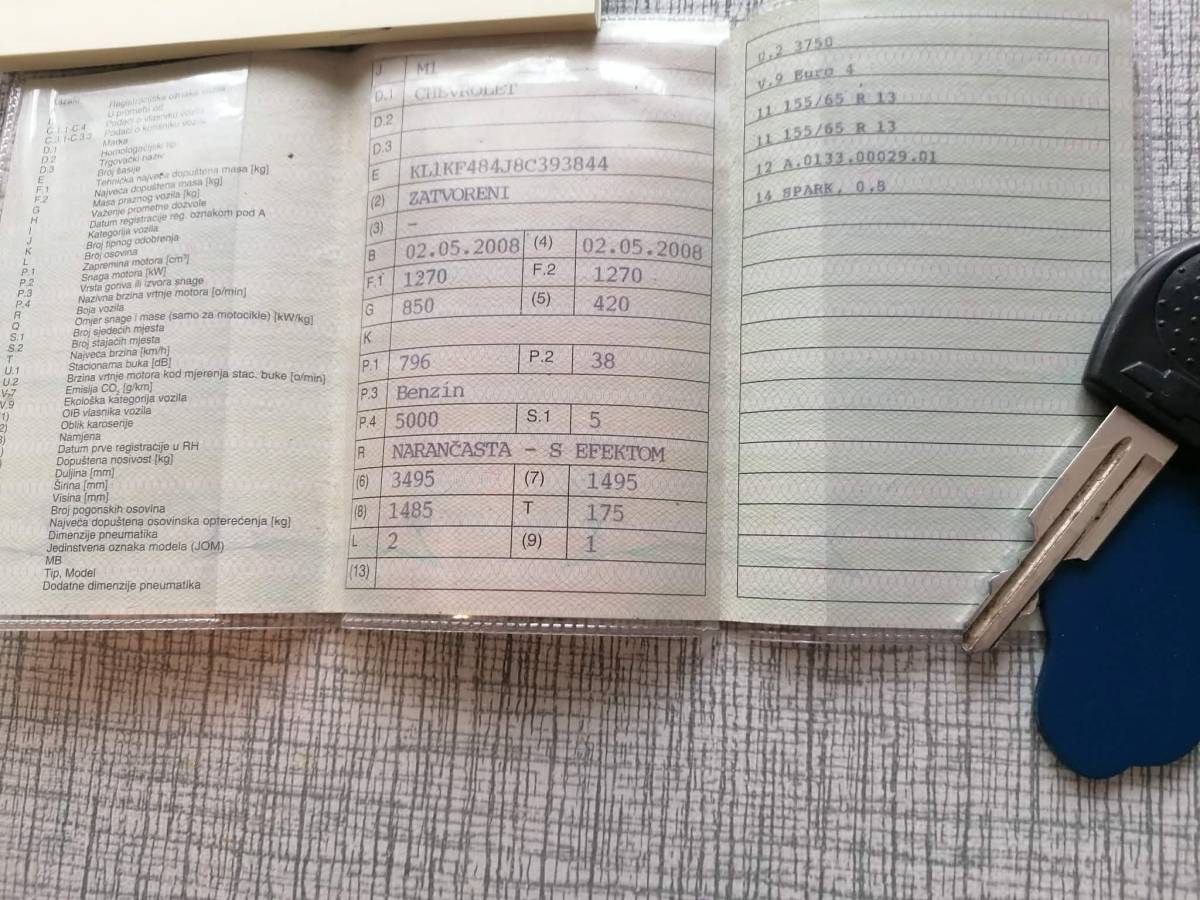 Registracijska oznaka vozila
U prometu od
C.1.1-C.4 Podaci o vlasniku vozila
C.3.1-C.3.3 Podaci o korisniku vozila
D.1 Marka
D.2 Homologacijski tip
D.3 Trgovački naziv
E Broj šasije
F.1 Tehnička najveća dopuštena masa [kg]
F.2 Najveća dopuštena masa [kg]
G Masa praznog vozila [kg]
H Važenje prometne dozvole
I Datum registracije reg. oznakom pod A
J Kategorija vozila
K Broj tipnog odobrenja
L Broj osovina
P.1 Zapremina motora [cm³]
P.2 Snaga motora [kW]
P.3 Vrsta goriva ili izvora snage
P.4 Nazivna brzina vrtnje motora [o/min]
R Boja vozila
Q Omjer snage i mase (samo za motocikle) [kW/kg]
S.1 Broj sjedećih mjesta
S.2 Broj stajaćih mjesta
T Najveća brzina [km/h]
U.1 Stacionarna buka [dB]
U.2 Brzina vrtnje motora kod mjerenja stac. buke [o/min]
V.7 Emisija CO₂ [g/km]
V.9 Ekološka kategorija vozila
OIB vlasnika vozila
Oblik karoserije
Namjena
Datum prve registracije u RH
Dopuštena nosivost [kg]
Duljina [mm]
Širina [mm]
Visina [mm]
Broj pogonskih osovina
Najveća dopuštena osovinska opterećenja [kg]
Dimenzije pneumatika
Jedinstvena oznaka modela (JOM)
MB
Tip, Model
Dodatne dimenzije pneumatika
J M1
D.1 CHEVROLET
D.2
D.3
E KL1KF484J8C393844
(2) ZATVORENI
(3) –
B 02.05.2008 (4) 02.05.2008
F.1 1270 F.2 1270
G 850 (5) 420
K
P.1 796 P.2 38
P.3 Benzin
P.4 5000 S.1 5
R NARANČASTA - S EFEKTOM
(6) 3495 (7) 1495
(8) 1485 T 175
L 2 (9) 1
(13)
U.2 3750
V.9 Euro 4
11 155/65 R 13
11 155/65 R 13
12 A.0133.00029.01
14 SPARK, 0.8